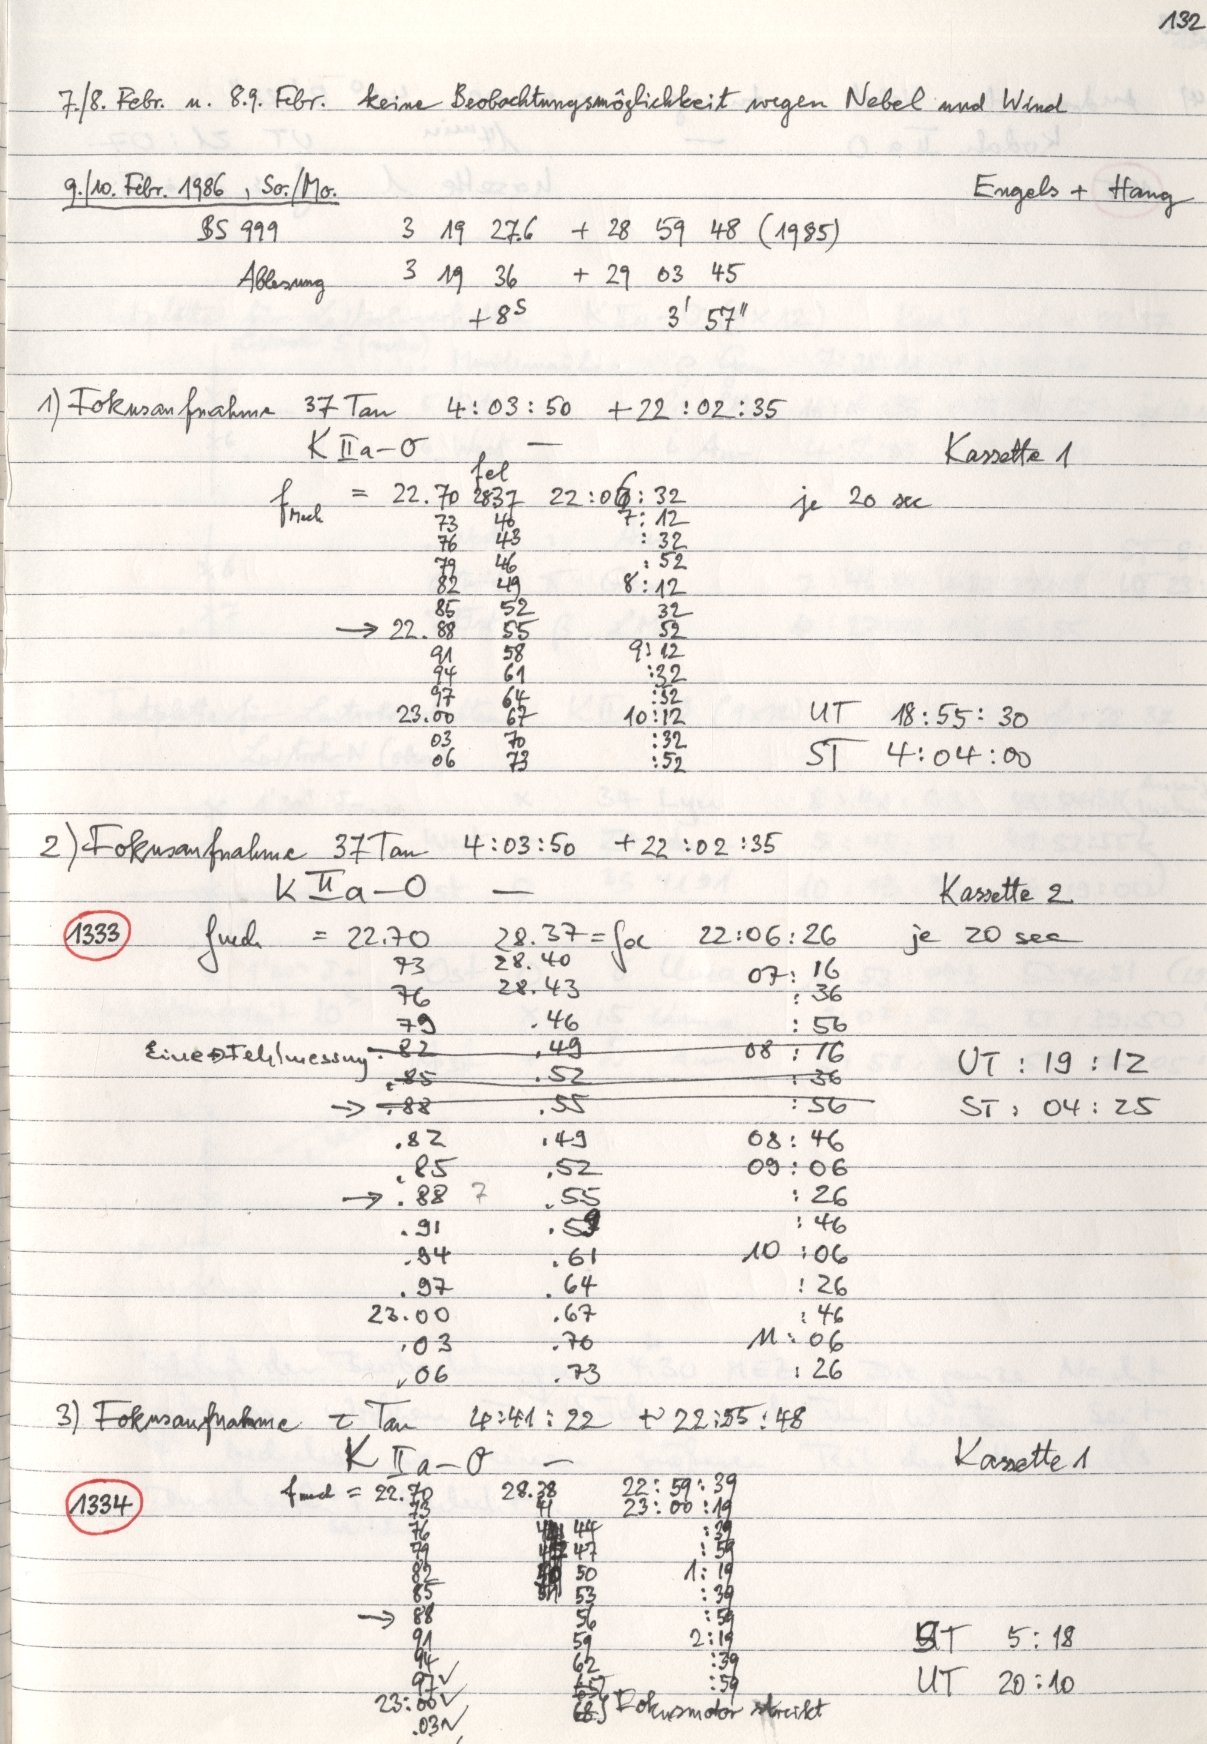 132
7./8. Febr. u. 8.9. Febr. keine Beobachtungsmöglichkeit wegen Nebel und Wind
9./10. Febr. 1986, So./Mo. Engels + Hang
BS 999 3 19 27.6 + 28 59 48 (1985)
Ablesung 3 19 36 + 29 03 45
+8s 3' 57"
1) Fokusaufnahme 37 Tau 4:03:50 +22:02:35
K IIa-O — Kassette 1
fel
fMech = 22.70 2837 22:06:32 je 20 sec
73 40 7:12
76 43 :32
79 46 :52
82 49 8:12
85 52 32
→ 22.88 55 52
91 58 9:12
94 61 :32
97 64 :52
23.00 67 10:12 UT 18:55:30
03 70 :32
06 73 :52 ST 4:04:00
2) Fokusaufnahme 37 Tau 4:03:50 +22:02:35
K IIa-O — Kassette 2
1333 fmech = 22.70 28.37 = foc 22:06:26 je 20 sec
73 28.40 07:16
76 28.43 :36
79 .46 :56
Eine Fehlmessung .82 .49 08:16 UT: 19:12
.85 .52 :36
→ .88 .55 :56 ST: 04:25
.82 .49 08:46
.85 .52 09:06
→ .88 7 .55 :26
.91 .59 :46
.94 .61 10:06
.97 .64 :26
23.00 .67 :46
.03 .70 11:06
.06 .73 :26
3) Fokusaufnahme τ Tau 4:41:22 +22:55:48
K IIa-O — Kassette 1
1334 fmech = 22.70 28.38 22:59:39
73 41 23:00:19
76 44 :39
79 47 :59
82 50 1:19
85 53 :39
→ 88 56 :59
91 59 2:19 ST 5:18
94 62 :39
97✓ 65 :59 UT 20:10
23:00✓ 68 } Fokusmotor streikt
.03✓